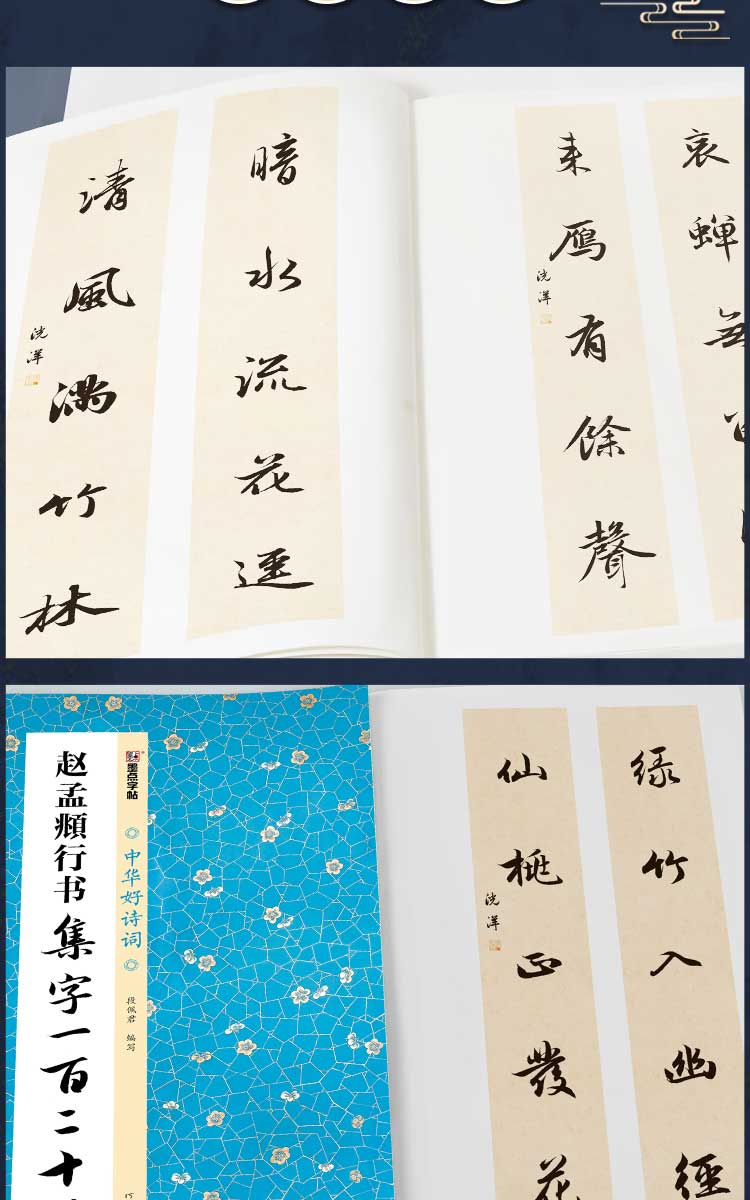 暗水流花逕
清風滿竹林
哀蟬無
来雁有餘聲
墨点字帖
中华好诗词
段佩君 编写
赵孟頫行书集字一百二十
緑竹入幽徑
仙桃正發花